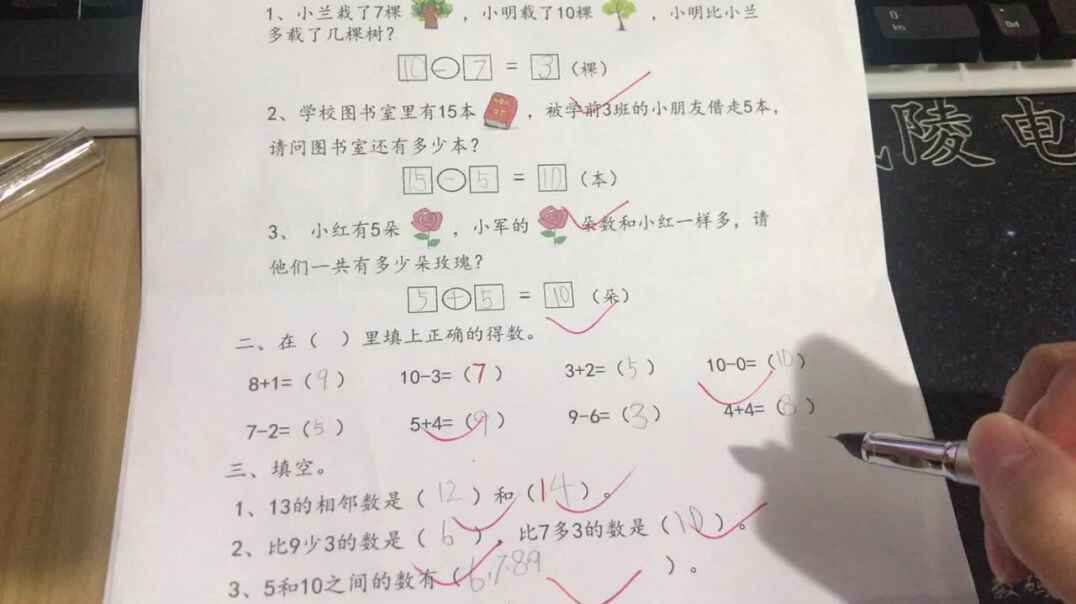 1、小兰栽了7棵 ，小明载了10棵 ，小明比小兰
多载了几棵树？
10-7=3（棵）
2、学校图书室里有15本 ，被学前3班的小朋友借走5本，
请问图书室还有多少本？
15-5=10（本）
3、小红有5朵 ，小军的 朵数和小红一样多，请
他们一共有多少朵玫瑰？
5+5=10（朵）
二、在（ ）里填上正确的得数。
8+1=（9） 10-3=（7） 3+2=（5） 10-0=（10）
7-2=（5） 5+4=（9） 9-6=（3） 4+4=（8）
三、填空。
1、13的相邻数是（12）和（14）。
2、比9少3的数是（6），比7多3的数是（10）。
3、5和10之间的数有（6,7.89）。
陵 电